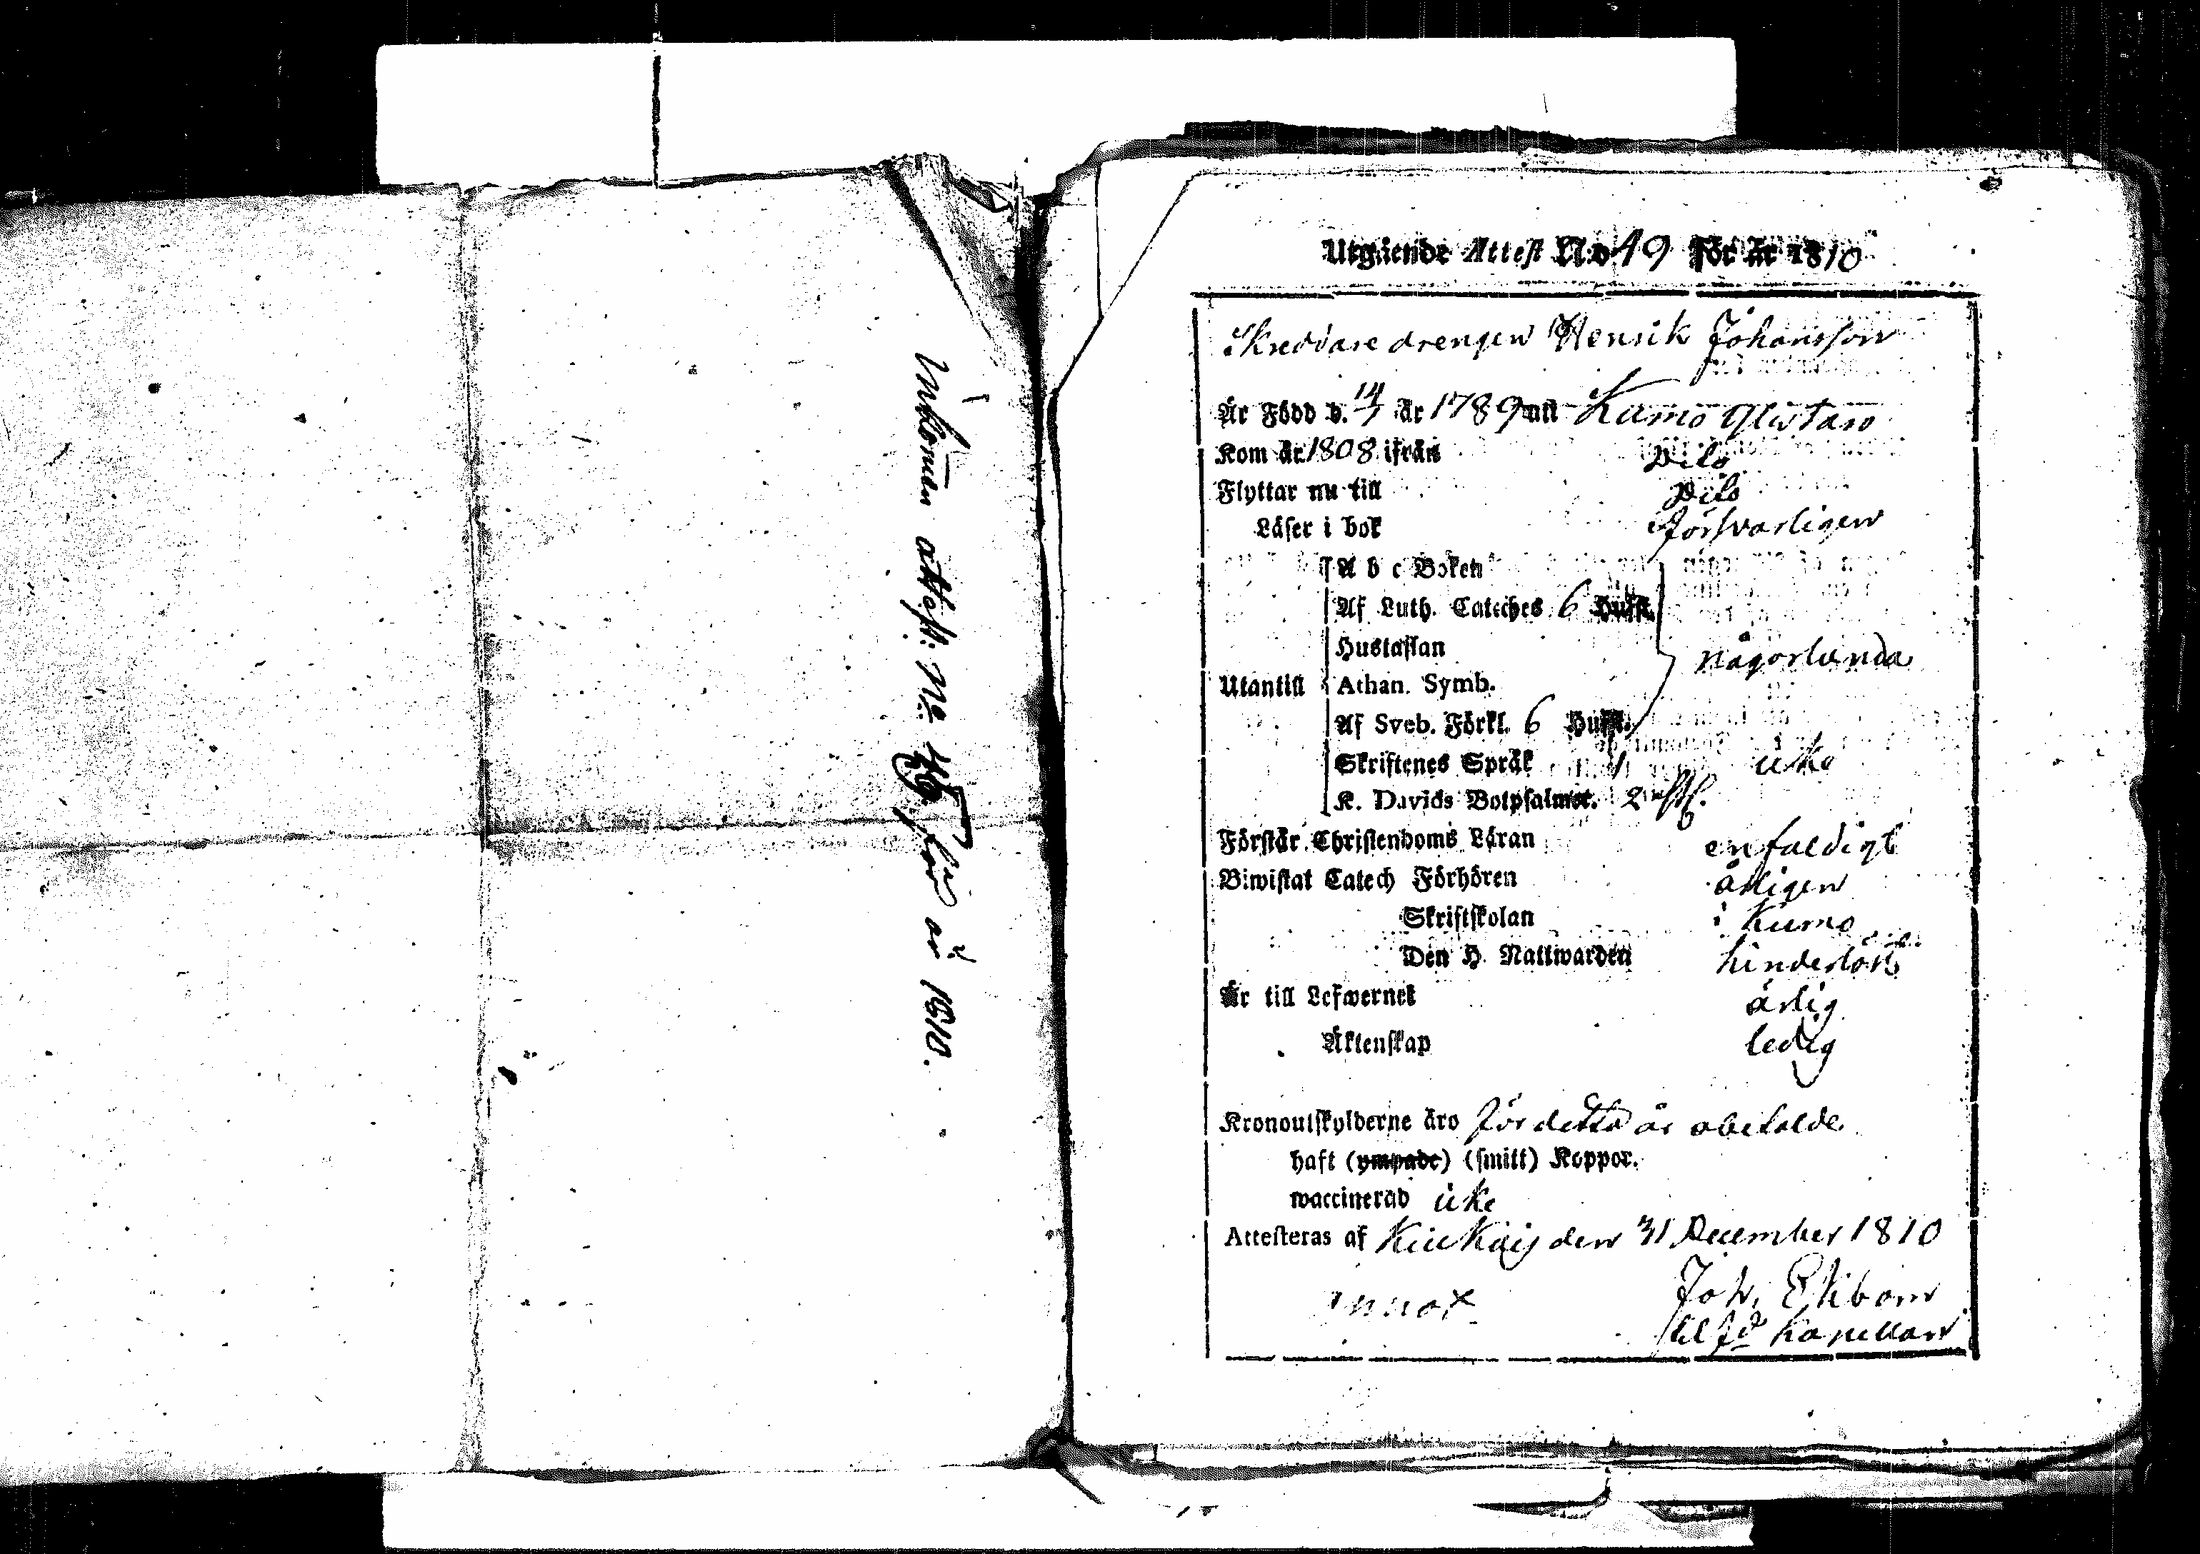 Inkommen attest. No 49 för år 1810.
Utgående Attest No 49 För år 1810
Skreddare drengen Henrik Johansson
Är Född d. 14/7 år 1789 uti Kumo Glistaro
Kom år 1808 ifrån Dito
Flyttar nu till Dito
Läser i bok försvarligen
A b c Boken
Af Luth. Cateches 6 Hufst.
Hustaflan någorlunda
Utantill Athan. Symb.
Af Sveb. Förkl. 6 Hufst.
Skriftenes Språk icke
K. Davids Botpsalmer. 2
Förstår Christendoms Läran enfaldigt
Biwistat Catech Förhören årligen
Skriftskolan i Kumo
Den H. Nattwarden hinderlöst
Är till Lefwernet ärlig
Äktenskap ledig
Kronoutskylderne äro för detta år abetalde
haft (ympade) (smitt) Koppor.
waccinerad icke
Attesteras af Kiukais den 31 December 1810
Joh. Ekbom